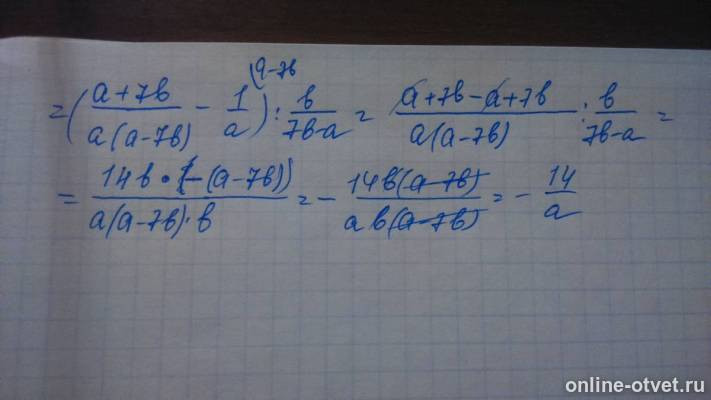 = ( (a+7b)/(a(a-7b)) - 1/a (a-7b ) : b/(7b-a) = (a+7b-a+7b)/(a(a-7b)) : b/(7b-a) =
= (14b • (-(a-7b)))/(a(a-7b)·b) = - (14b(a-7b))/(ab(a-7b)) = - 14/a
online-otvet.ru